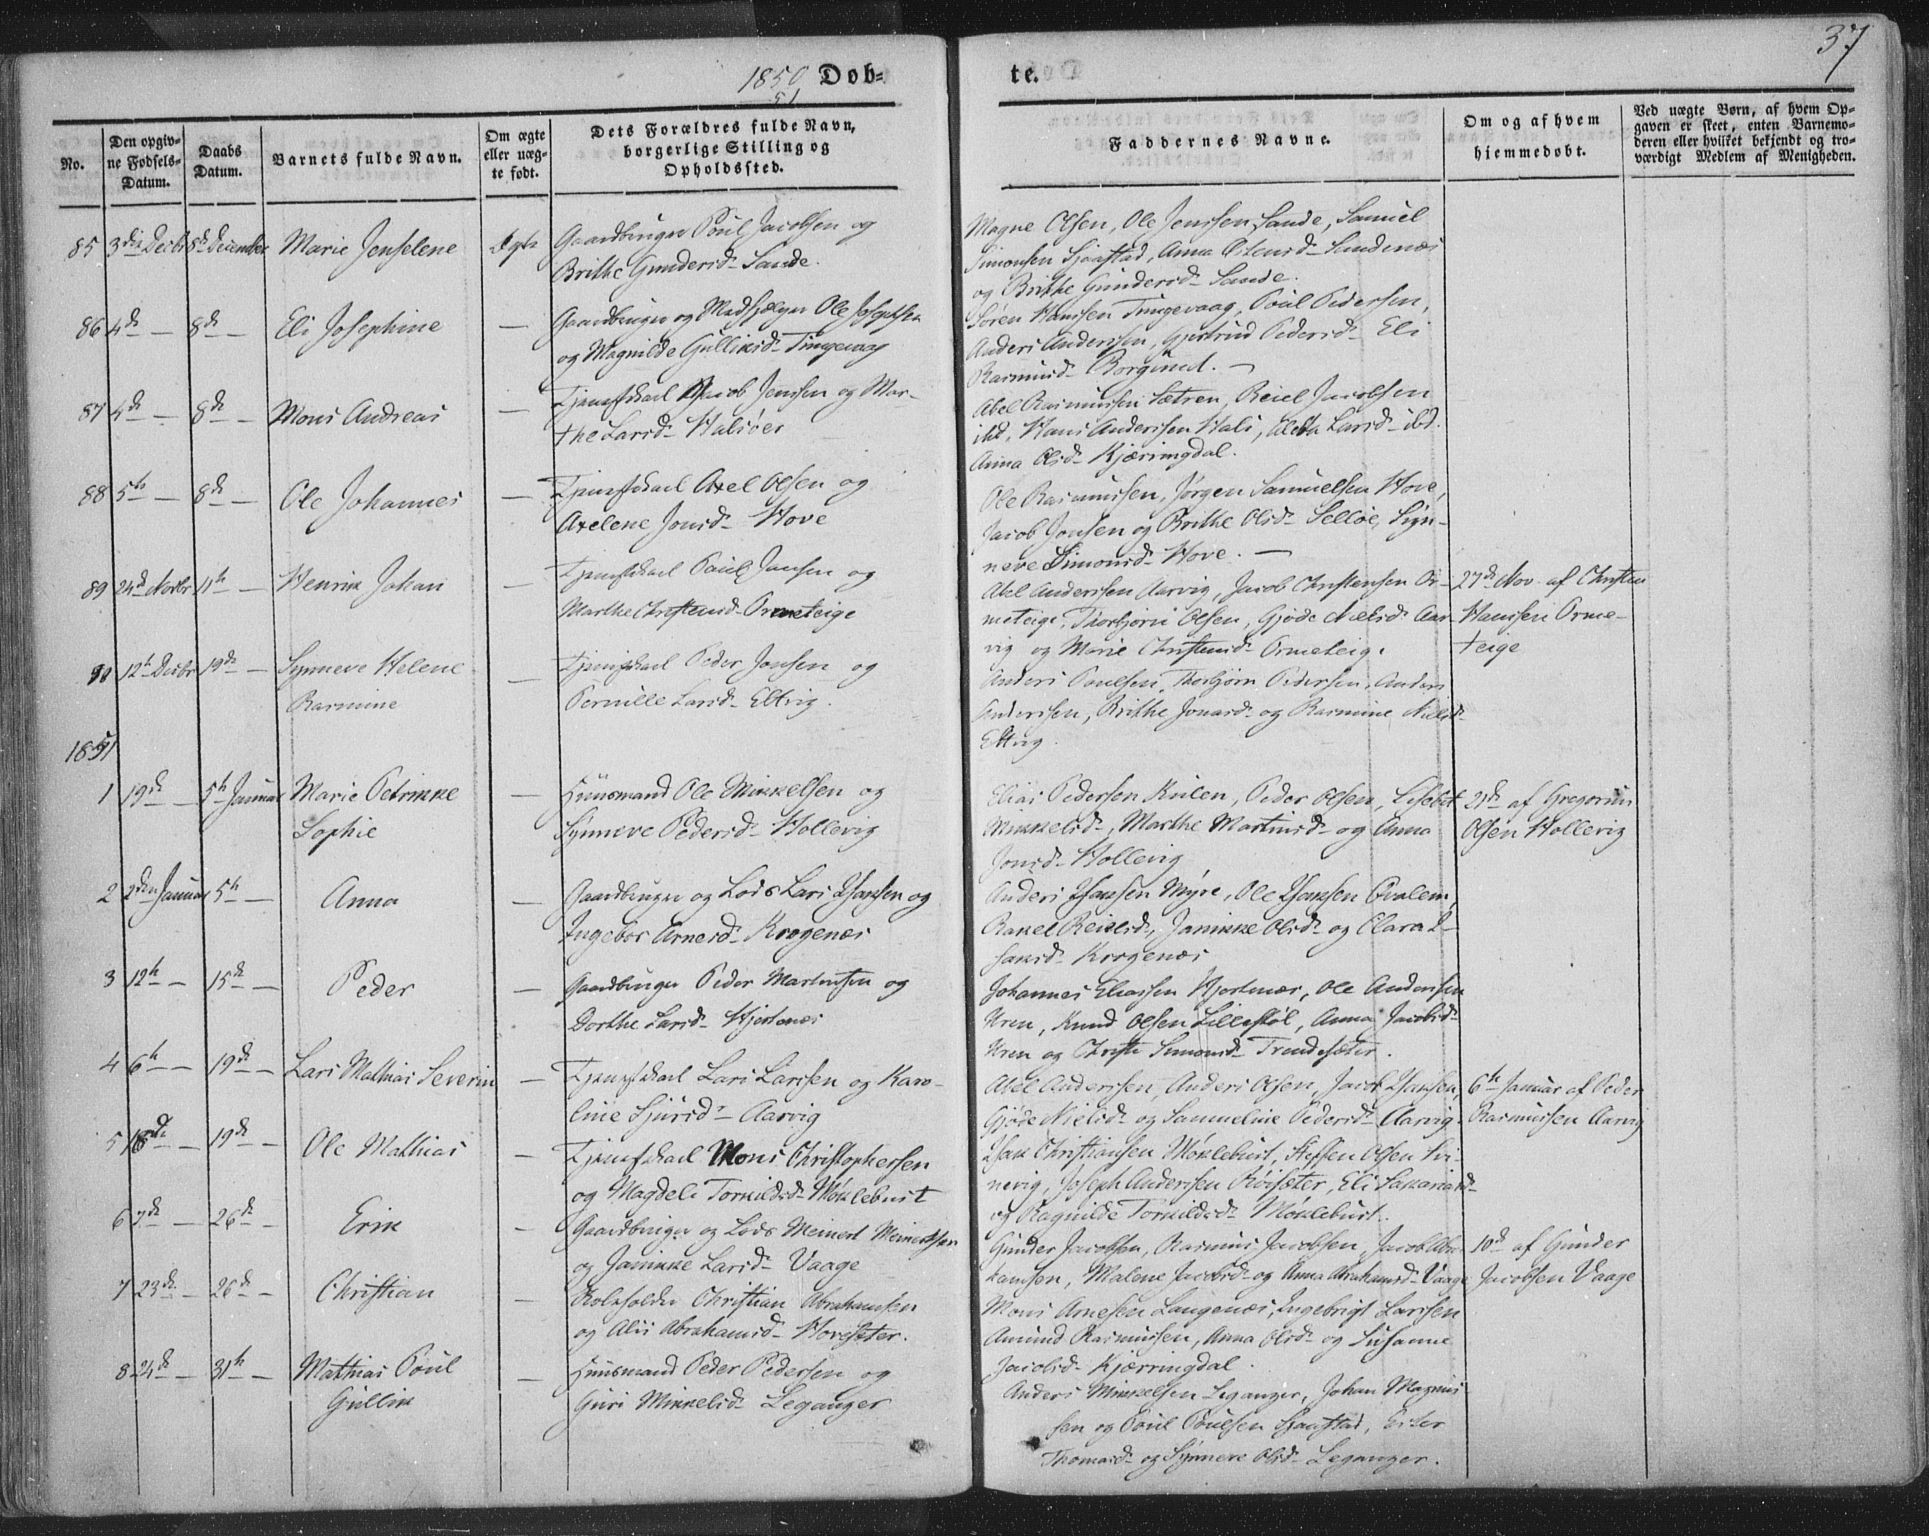 1850 Døb-
51
te.
37
No.
Den opgiv-
ne Fødsels-
Datum.
Daabs
Datum.
Barnets fulde Navn.
Om ægte
eller uæg-
te født.
Dets Forældres fulde Navn,
borgerlige Stilling og
Opholdssted.
Faddernes Navne.
Om og af hvem
hiemmedøbt.
Ved uægte Børn, af hvem Op-
gaven er skeet, enten Barnemo-
deren eller hvilket bekjendt og tro-
værdigt Medlem af Menigheden.
85 3die Decbr 8de December Marie Jenselene Ægte Gaardbruger Poul Jacobsen og
Brithe Gundersd. Sande.
Magne Olsen, Ole Jenssen Sande, Samuel
Simonsen Sjaastad, Anna Østensd. Sandenæs
og Brithe Gundersd. Sande.
86 4de — 8de — Eli Josephine — Gaardbruger og Medhjælper Ole Josephsen
og Magnilde Gulliksd. Tungevaag
Søren Hanssen Tungevaag, Poul Pedersen,
Anders Anderssen, Gjertrud Pedersd. Eli
Rasmusd. Borgund. —
87 4de — 8de — Mons Andreas — Tjenestekarl Jacob Jenssen og Mar-
the Larsd. Halsøer
Abel Rasmussen Sætren, Reiel Jacobsen
ibd, Hans Anderssen Hals, Larsd. ibd.
Anna Olsd. Kjæringdal.
88 5te — 8de — Ole Johannes — Tjenestekarl Axel Olsen og
Axelene Jonsd. Hove
Ole Rasmussen, Jørgen Samuelsen Hove,
Jacob Jonsen og Brithe Olsd. Selløe, Syn-
neve Simonsd. Hove. —
89 24de Novbr 11te — Henrik Johan — Tjenestekarl Paul Jansen og
Marthe Christensd. Ormeteige
Abel Anderssen Aarvig, Jacob Christensen Or-
meteige, Thorbjørn Olsen, Gjøde Nielsd. Aar-
vig og Marie Christensd. Ormeteig.
27de Nov. af Christen
Hanssen Orme-
teige
90 12te Decbr 19de — Synneve Helene
Rasmine
— Tjenestekarl Peder Jonsen og
Pernille Larsd. Eltvig.
Anders Poulsen, Thorbjørn Pedersen, Anders
Anderssen, Brithe Jonasd. og Rasmine Nielsd.
Eltvig.
1851
1 19de — 5te Januar Marie Petrikke
Sophie
— Huusmand Ole Mikkelsen og
Synneve Pedersd. Hollevig
Elias Pedersen Kulen, Peder Olsen, Lisebet
Mikkelsd., Marthe Martinusd. og Anna
Jonsd. Hollevig
21de af Gregorius
Olsen Hollevig
2 2den Januar 5te — Anna — Gaardbruger og Lods Lars Isaksen og
Ingebor Arnesd. Krogenæs
Anders Isaksen Myre, Ole Isaksen Qvalem,
Rakel Reielsd., Janikke Olsd. og Clara I-
saksd. Krogenæs
3 12te — 15de — Peder — Gaardbruger Peder Martinsen og
Dorthe Larsd. Hjertenæs
Johannes Eliassen Hjertenæs, Ole Anderssen
Uren, Knud Olsen Lillestøl, Anna Jacobsd.
Uren og Christi Simonsd. Trendesæter.
4 6te — 19de — Lars Mathias Severin — Tjenestekarl Lars Larssen og Karo-
line Sjursd. Aarvig
Abel Anderssen, Anders Olsen, Jacob Isaksen,
Gjøde Nielsd. og Samueline Pedersd. Aarvig.
6te Januar af Peder
Rasmussen Aarvig
5 18de — 19de — Ole Mathias — Tjenestekarl Mons Christophersen
og Magdeli Torkildsd. Møklebust
Isak Christiansen Møklebust, Steffen Olsen
Joseph Anderssen Røisæter, Eli Sakariasd.
og Ragnilde Torkildsd. Møklebust.
6 7de — 26de — Erik — Gaardbruger og Lods Meinert Meinertsen
og Janikke Larsd. Vaage
Gunder Jacobsen, Rasmus Jacobsen, Jacob Abra-
hamsen, Malene Jacobsd. og Anna Abrahamsd. Vaage
10de af Gunder
Jacobsen Vaage
7 23de — 26de — Christian — Rolsholder Christian Abrahamsen
og Alis Abrahamsd. Hovesæter.
Mons Arnesen Langenæs, Ingebrigt Larssen
Amund Rasmussen, Anna Olsd. og Susanne
Jacobsd. Kjærringdal.
8 24de — 31te — Mathias Poul
Gullik
— Huusmand Peder Pedersen og
Guri Mikkelsd. Leganger
Anders Mikkelsen Leganger, Johan Magnus-
sen og Poul Poulsen Sjaastad, Ester
Thomasd. og Synneve Olsd. Leganger.